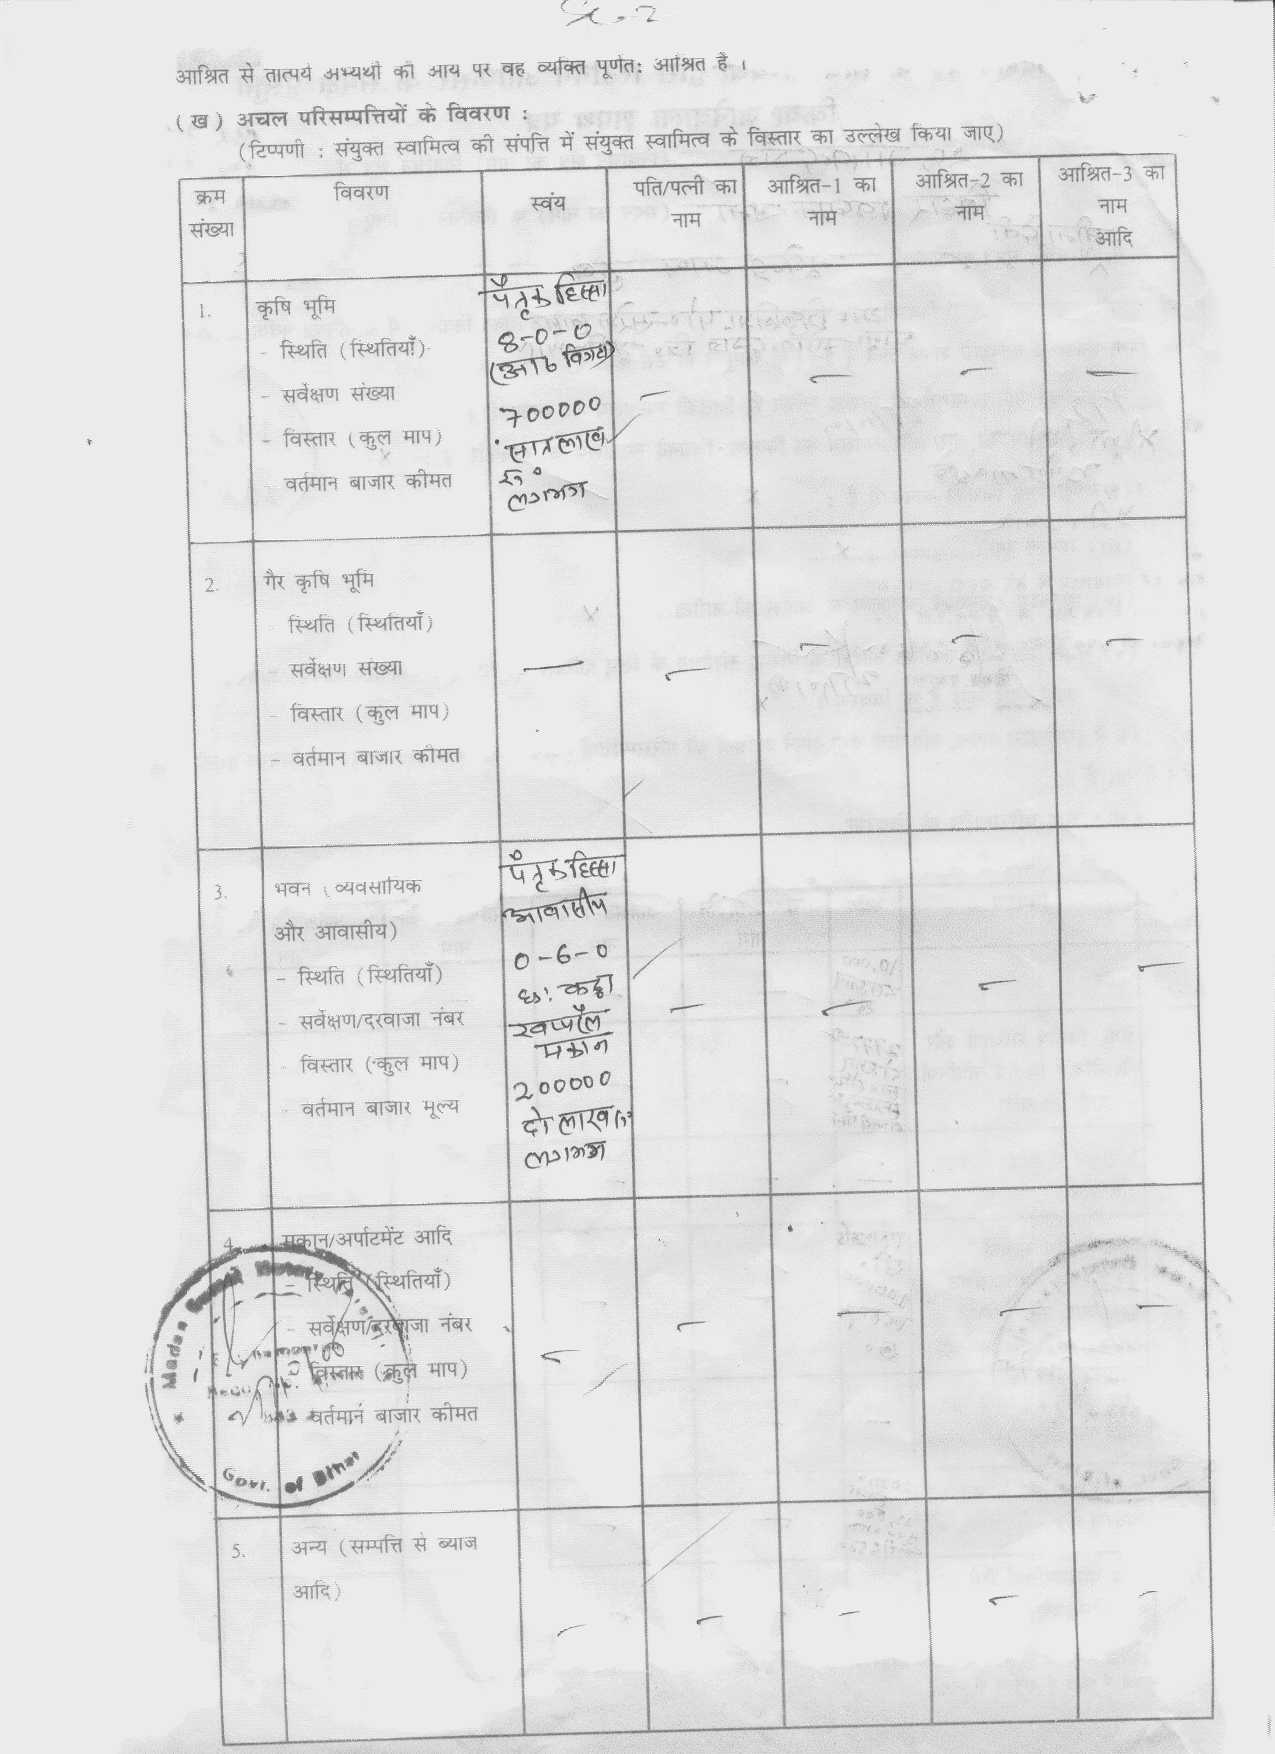 आश्रित से तात्पर्य अभ्यर्थी की आय पर वह व्यक्ति पूर्णत: आश्रित है ।
(ख) अचल परिसम्पत्तियों के विवरण :
(टिप्पणी : संयुक्त स्वामित्व की संपत्ति में संयुक्त स्वामित्व के विस्तार का उल्लेख किया जाए)
क्रम संख्या
विवरण
स्वंय
पति/पत्नी का नाम
आश्रित-1 का नाम
आश्रित-2 का नाम
आश्रित-3 का नाम आदि
1.
कृषि भूमि
- स्थिति (स्थितियाँ)
- सर्वेक्षण संख्या
- विस्तार (कुल माप)
- वर्तमान बाजार कीमत
पैतृक हिस्सा
8-0-0
(आठ विगहा)
700000
सात लाख
रू०
लगभग
2.
गैर कृषि भूमि
- स्थिति (स्थितियाँ)
- सर्वेक्षण संख्या
- विस्तार (कुल माप)
- वर्तमान बाजार कीमत
3.
भवन (व्यवसायिक
और आवासीय)
- स्थिति (स्थितियाँ)
- सर्वेक्षण/दरवाजा नंबर
- विस्तार (कुल माप)
- वर्तमान बाजार मूल्य
पैतृक हिस्सा
आवासीय
0-6-0
छः कट्ठा
खपरैल
मकान
200000
दो लाख
लगभग
4.
मकान/अर्पाटमेंट आदि
- स्थिति (स्थितियाँ)
- सर्वेक्षण/दरवाजा नंबर
- विस्तार (कुल माप)
- वर्तमान बाजार कीमत
Madan
Notary
Govt. of Bihar
5.
अन्य (सम्पत्ति से ब्याज
आदि)